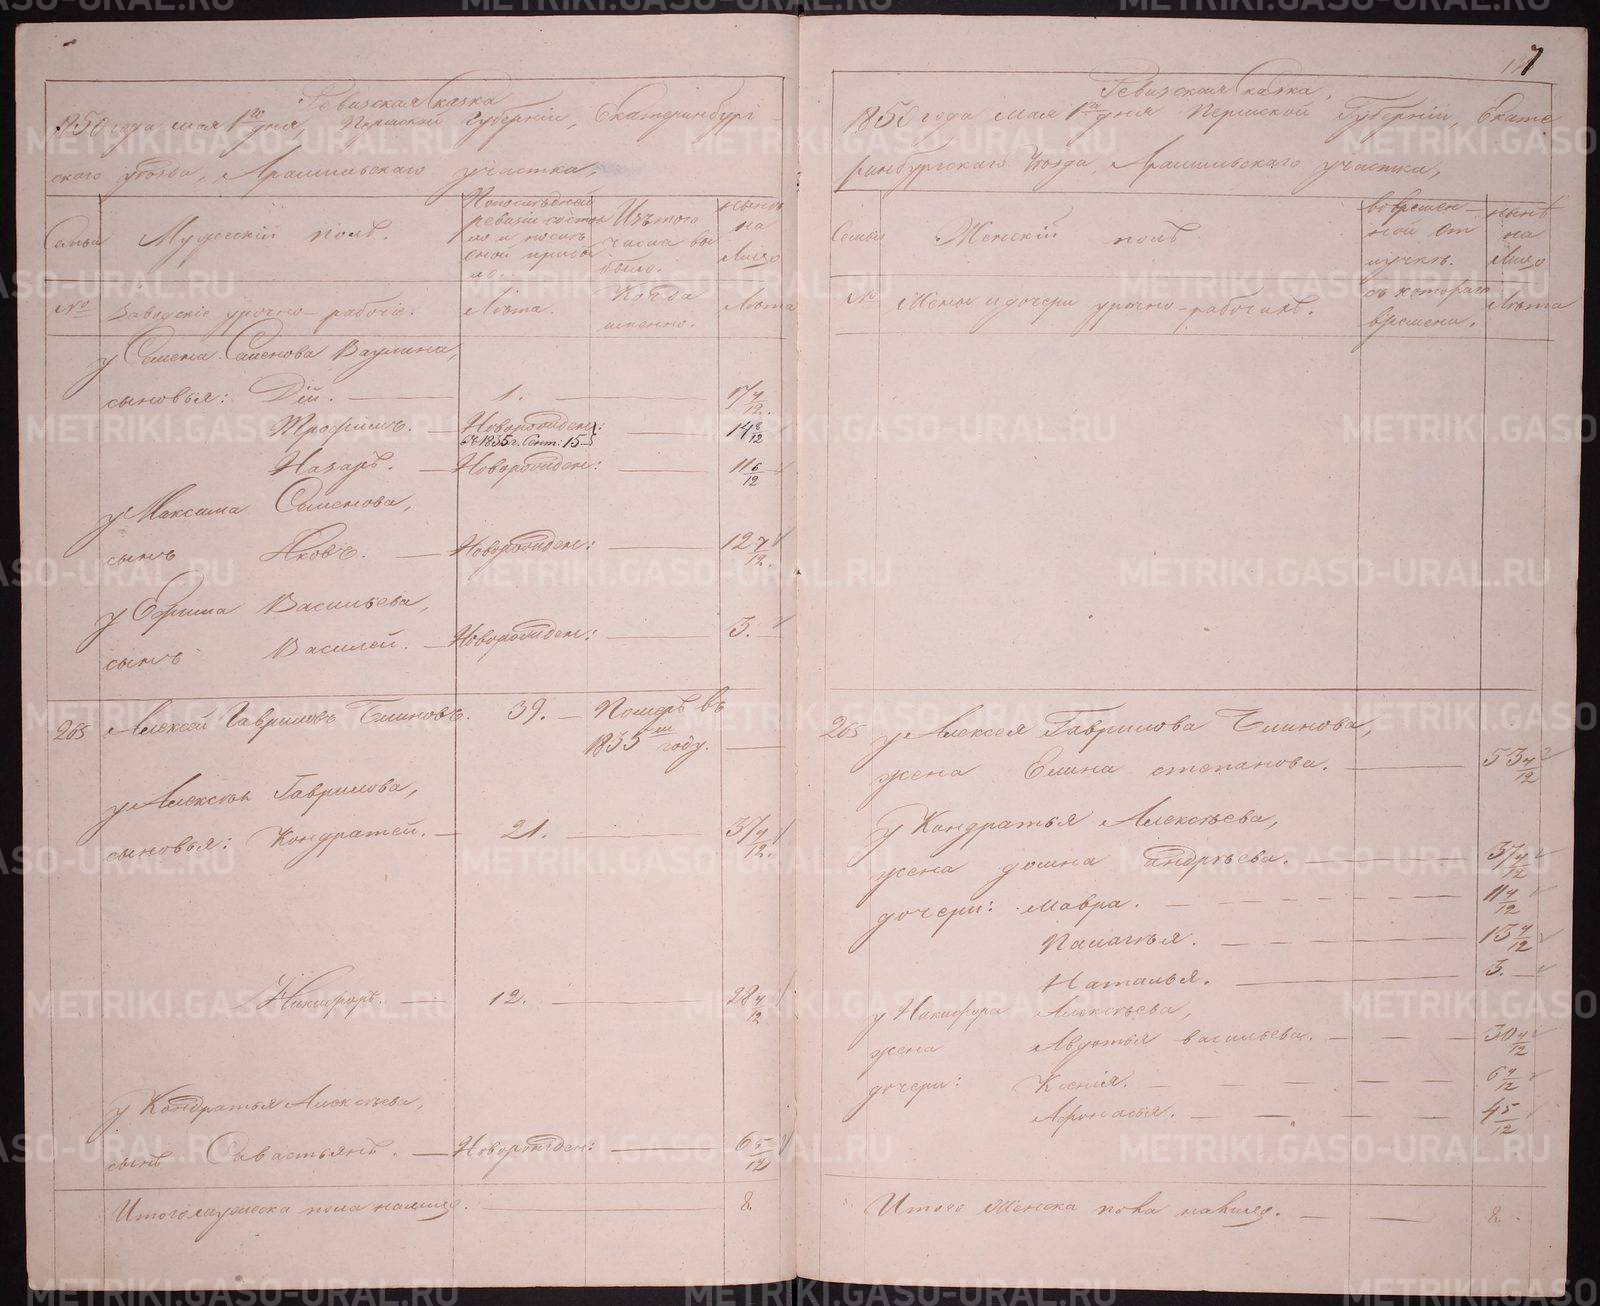 Ревизская Сказка
1850 года мая 1го дня, Пермской Губернiи, Екатеринбург-
скаго уѣзда, Арамильскаго участка,
Семьи
Мужескiй полъ.
По последней
ревизiи состоя
ло и после
оной прибы
ло.
Изъ того
числа вы
было.
нынѣ
на
Лицо
№
Заводскiе урочно-рабочiе.
Лѣта.
Когда
именно.
Лѣта
у Семена Семенова Ваулина,
сыновья: Дiй. — 1. — 17 4/12.
Трофимъ. — Новорожден: — 14 8/12
съ 1835 г. Сент: 15
Назаръ. — Новорожден: — 11 6/12
у Максима Семенова,
сынъ Яковъ. — Новорожден: — 12 7/12.
у Ефима Васильева,
сынъ Василей. — Новорожден: — 3.
265 Алексей Гавриловъ Блиновъ. 39. — Померъ въ
1835м году. —
у Алексѣя Гаврилова,
сыновья: Кондратей. — 21. — 37 4/12.
Никифоръ. — 12. — 28 4/12
у Кондратья Алексѣева,
сынъ Савастьянъ. — Новорожден: — 6 5/12
Итого мужеска пола налицо. — 8.
7
Ревизская Сказка,
1850 года мая 1го дня Пермской Губернiи, Екате
ринбургскаго Уѣзда, Арамильскаго участка,
Семьи
Женскiй полъ
во времен-
ной от
лучкѣ.
нынѣ
на
Лицо
№
Жены и дочери урочно-рабочихъ.
съ котораго
времени.
Лѣта
265 у Алексея Гаврилова Блинова,
жена Елина степанова. — 53 4/12
у Кондратья Алексѣева,
жена домна андрѣева. — 37 4/12
дочери: Мавра. — 11 4/12
Палагѣя. — 13 4/12
Наталья. — 3. —
у Никифора Алексѣева,
жена Авдотья васильева. — 30 4/12
дочери: Ксенiя. — 6 9/12
Афонасья. — 4 5/12
Итого Женска пола налицо. — 8.
METRIKI.GASO-URAL.RU